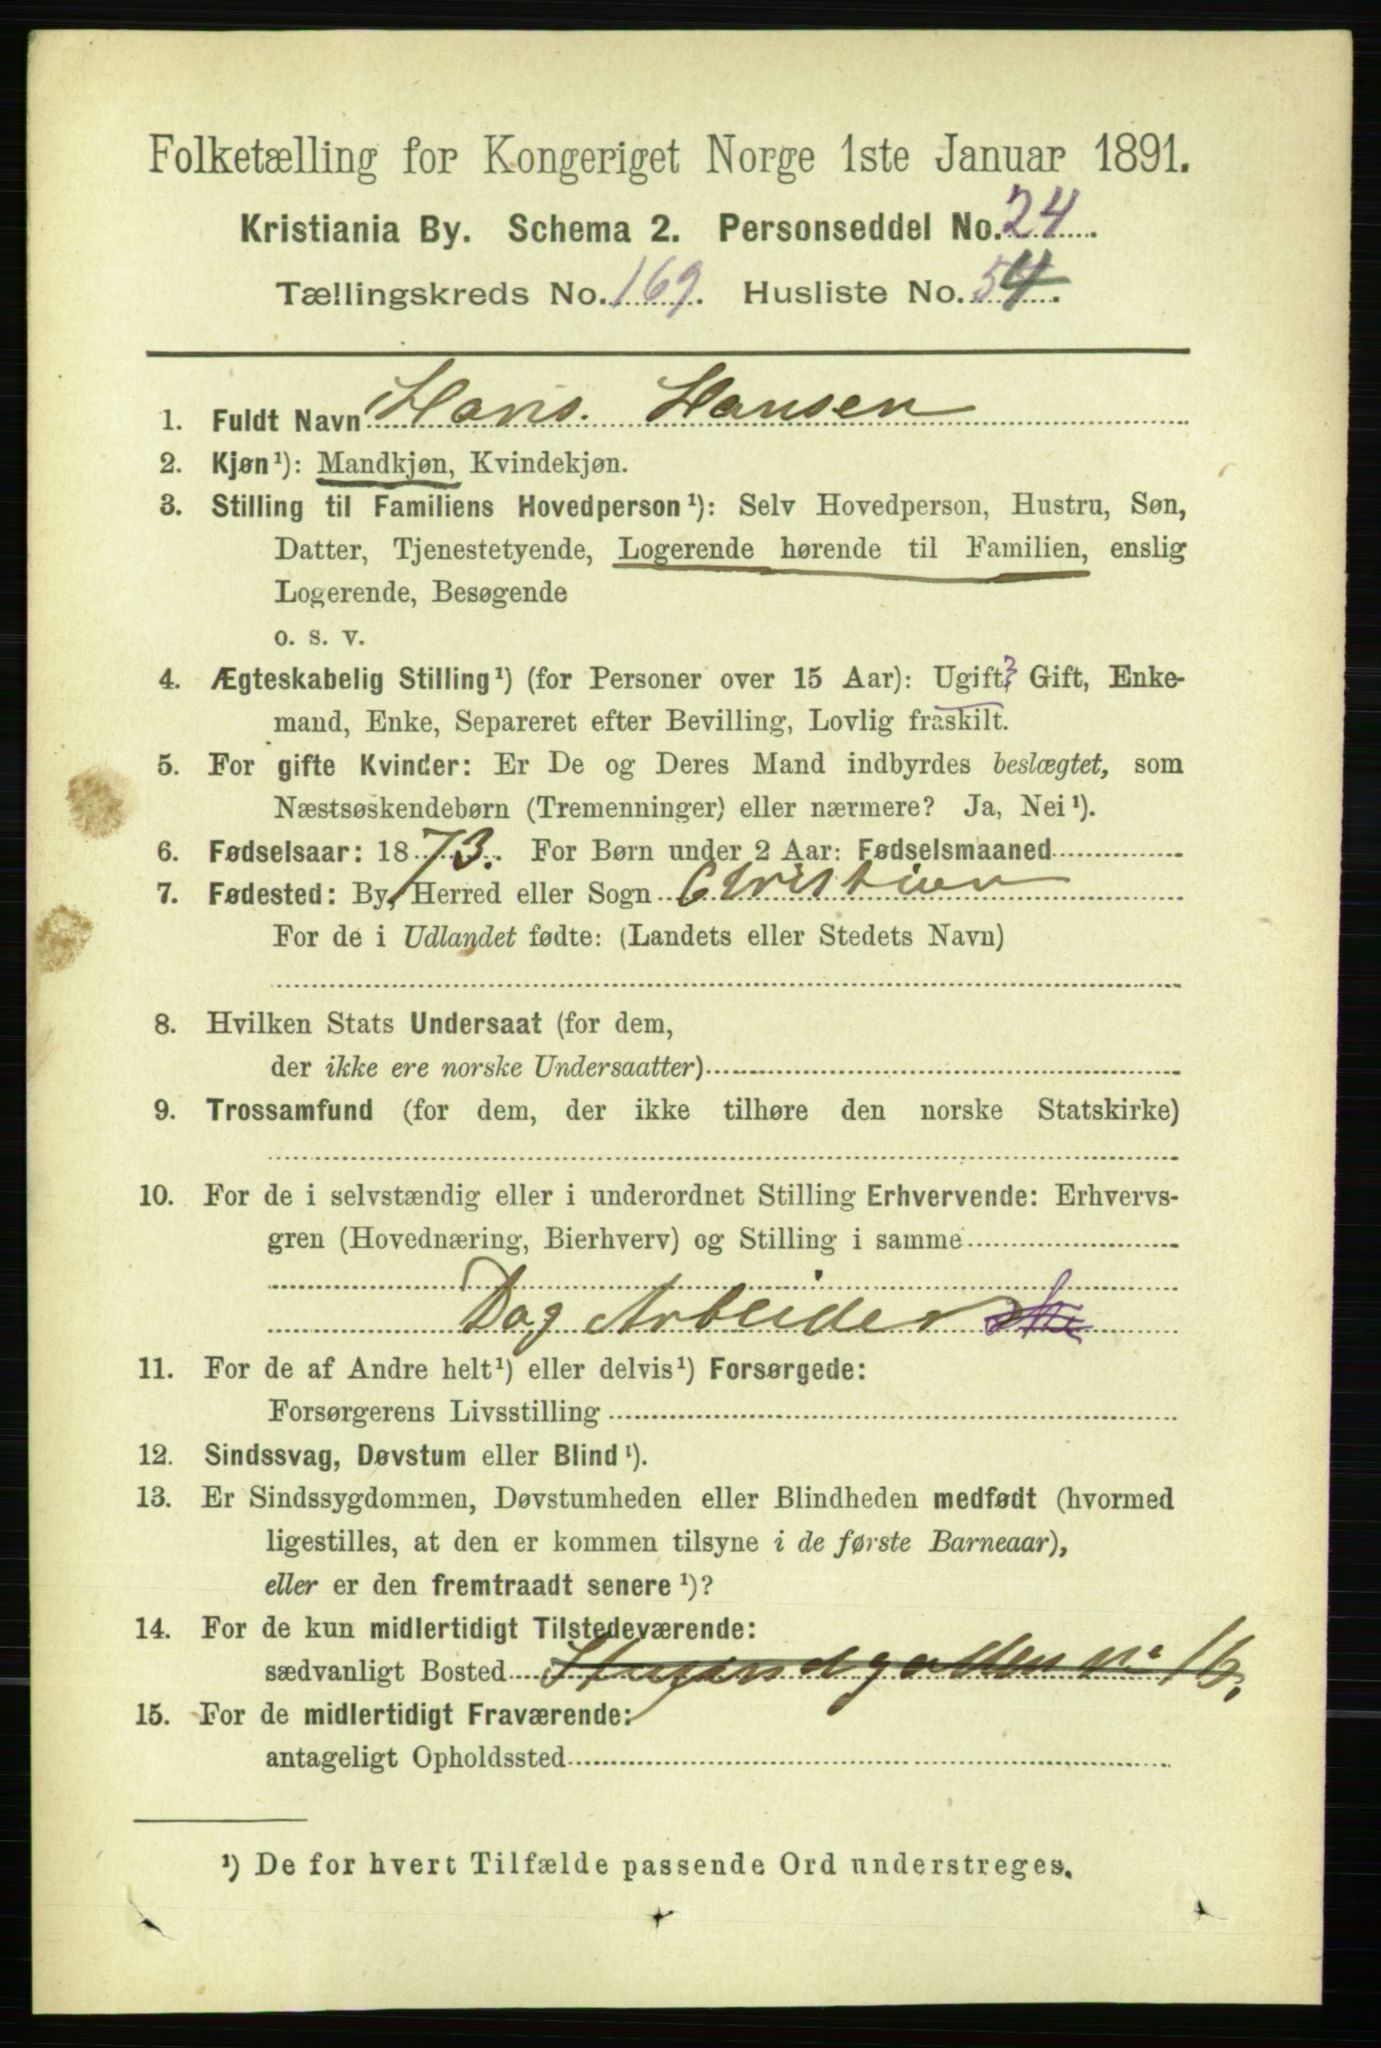 Folketælling for Kongeriget Norge 1ste Januar 1891.
Kristiania By. Schema 2. Personseddel No. 24
Tællingskreds No. 169. Husliste No. 54.
1. Fuldt Navn Hans. Hansen
2. Kjøn¹): Mandkjøn, Kvindekjøn.
3. Stilling til Familiens Hovedperson¹): Selv Hovedperson, Hustru, Søn,
Datter, Tjenestetyende, Logerende hørende til Familien, enslig
Logerende, Besøgende
o. s. v.
4. Ægteskabelig Stilling¹) (for Personer over 15 Aar): Ugift,? Gift, Enke-
mand, Enke, Separeret efter Bevilling, Lovlig fraskilt.
5. For gifte Kvinder: Er De og Deres Mand indbyrdes beslægtet, som
Næstsøskendebørn (Tremenninger) eller nærmere? Ja, Nei¹).
6. Fødselsaar: 1873. For Børn under 2 Aar: Fødselsmaaned
7. Fødested: By, Herred eller Sogn Christian
For de i Udlandet fødte: (Landets eller Stedets Navn)
8. Hvilken Stats Undersaat (for dem,
der ikke ere norske Undersaatter)
9. Trossamfund (for dem, der ikke tilhøre den norske Statskirke)
10. For de i selvstændig eller i underordnet Stilling Erhvervende: Erhvervs-
gren (Hovednæring, Bierhverv) og Stilling i samme
Dag Arbeider
11. For de af Andre helt¹) eller delvis¹) Forsørgede:
Forsørgerens Livsstilling
12. Sindssvag, Døvstum eller Blind¹).
13. Er Sindssygdommen, Døvstumheden eller Blindheden medfødt (hvormed
ligestilles, at den er kommen tilsyne i de første Barneaar),
eller er den fremtraadt senere¹)?
14. For de kun midlertidigt Tilstedeværende:
sædvanligt Bosted No 16.
15. For de midlertidigt Fraværende:
antageligt Opholdssted
¹) De for hvert Tilfælde passende Ord understreges.